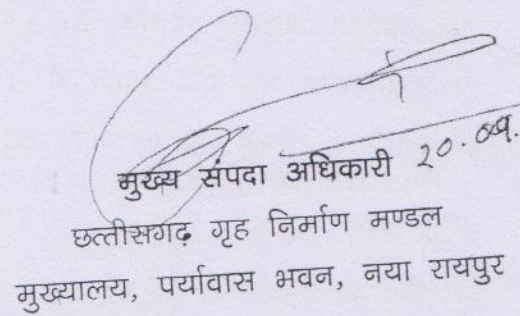 मुख्य संपदा अधिकारी 20.09.
छत्तीसगढ़ गृह निर्माण मण्डल
मुख्यालय, पर्यावास भवन, नया रायपुर